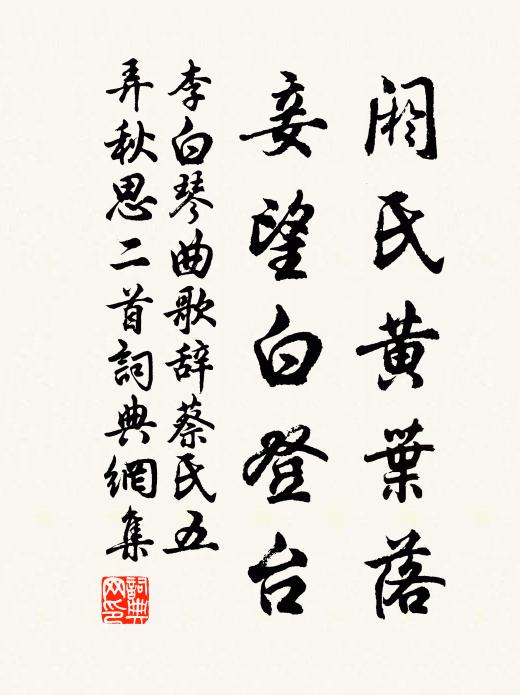 阏氏黄葉落
妾望白登台
李白琴曲歌辞蔡氏五
弄秋思二首詞典網集
詞典網印